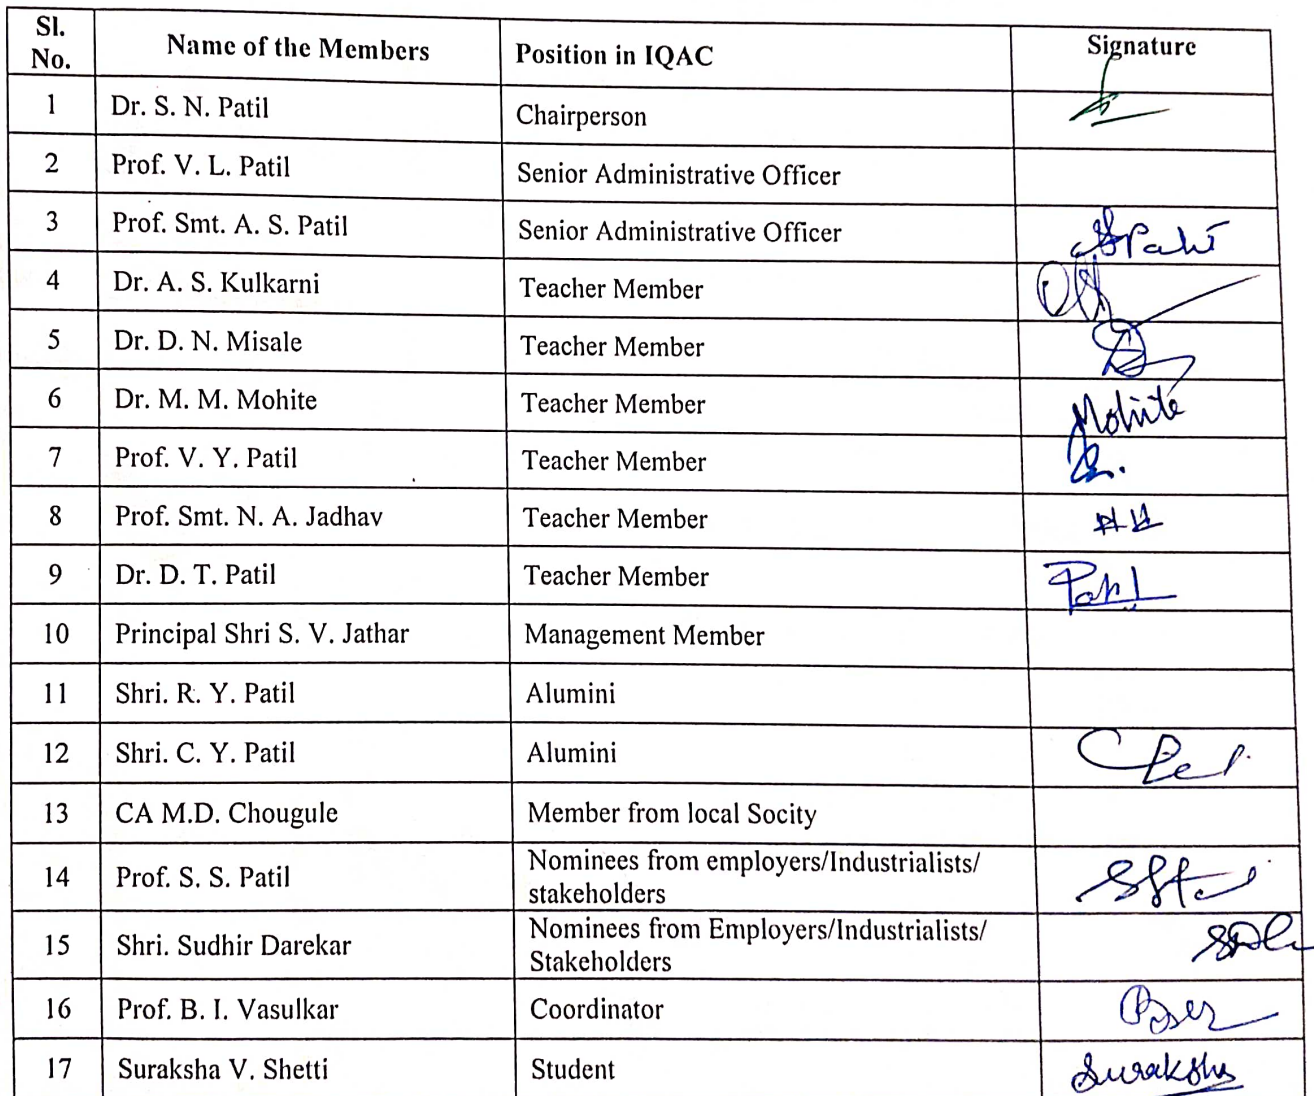 Sl. No. Name of the Members Position in IQAC Signature
1 Dr. S. N. Patil Chairperson
2 Prof. V. L. Patil Senior Administrative Officer
3 Prof. Smt. A. S. Patil Senior Administrative Officer
4 Dr. A. S. Kulkarni Teacher Member
5 Dr. D. N. Misale Teacher Member
6 Dr. M. M. Mohite Teacher Member Mohite
7 Prof. V. Y. Patil Teacher Member
8 Prof. Smt. N. A. Jadhav Teacher Member
9 Dr. D. T. Patil Teacher Member
10 Principal Shri S. V. Jathar Management Member
11 Shri. R. Y. Patil Alumini
12 Shri. C. Y. Patil Alumini
13 CA M.D. Chougule Member from local Socity
14 Prof. S. S. Patil Nominees from employers/Industrialists/
stakeholders
15 Shri. Sudhir Darekar Nominees from Employers/Industrialists/
Stakeholders
16 Prof. B. I. Vasulkar Coordinator
17 Suraksha V. Shetti Student Suraksha